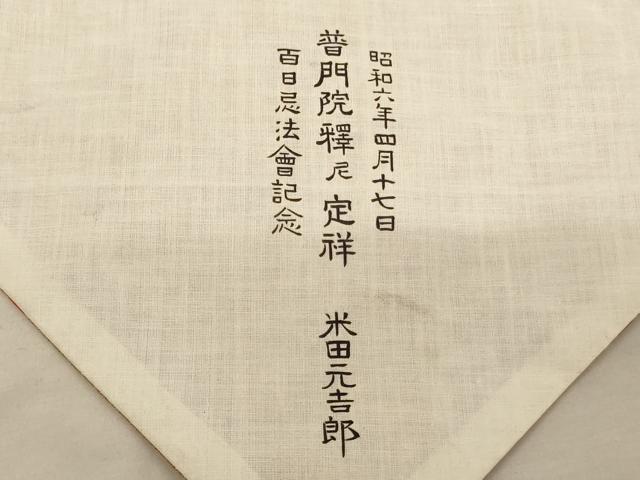 昭和六年四月十七日
普門院釋尼定祥
百日忌法會記念
米田元吉郎